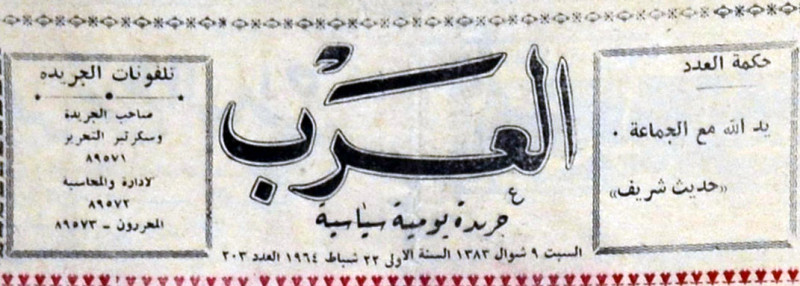 حكمة العدد
يد الله مع الجماعة .
«حديث شريف»
العرب
جريدة يومية سياسية
السبت ٩ شوال ١٣٨٣ السنة الاولى ٢٢ شباط ١٩٦٤ العدد ٢٠٣
تلفونات الجريده
صاحب الجريدة
وسكرتير التحرير
٨٩٥٧١
لادارة والمحاسبة
٨٩٥٧٢
المحررون - ٨٩٥٧٣